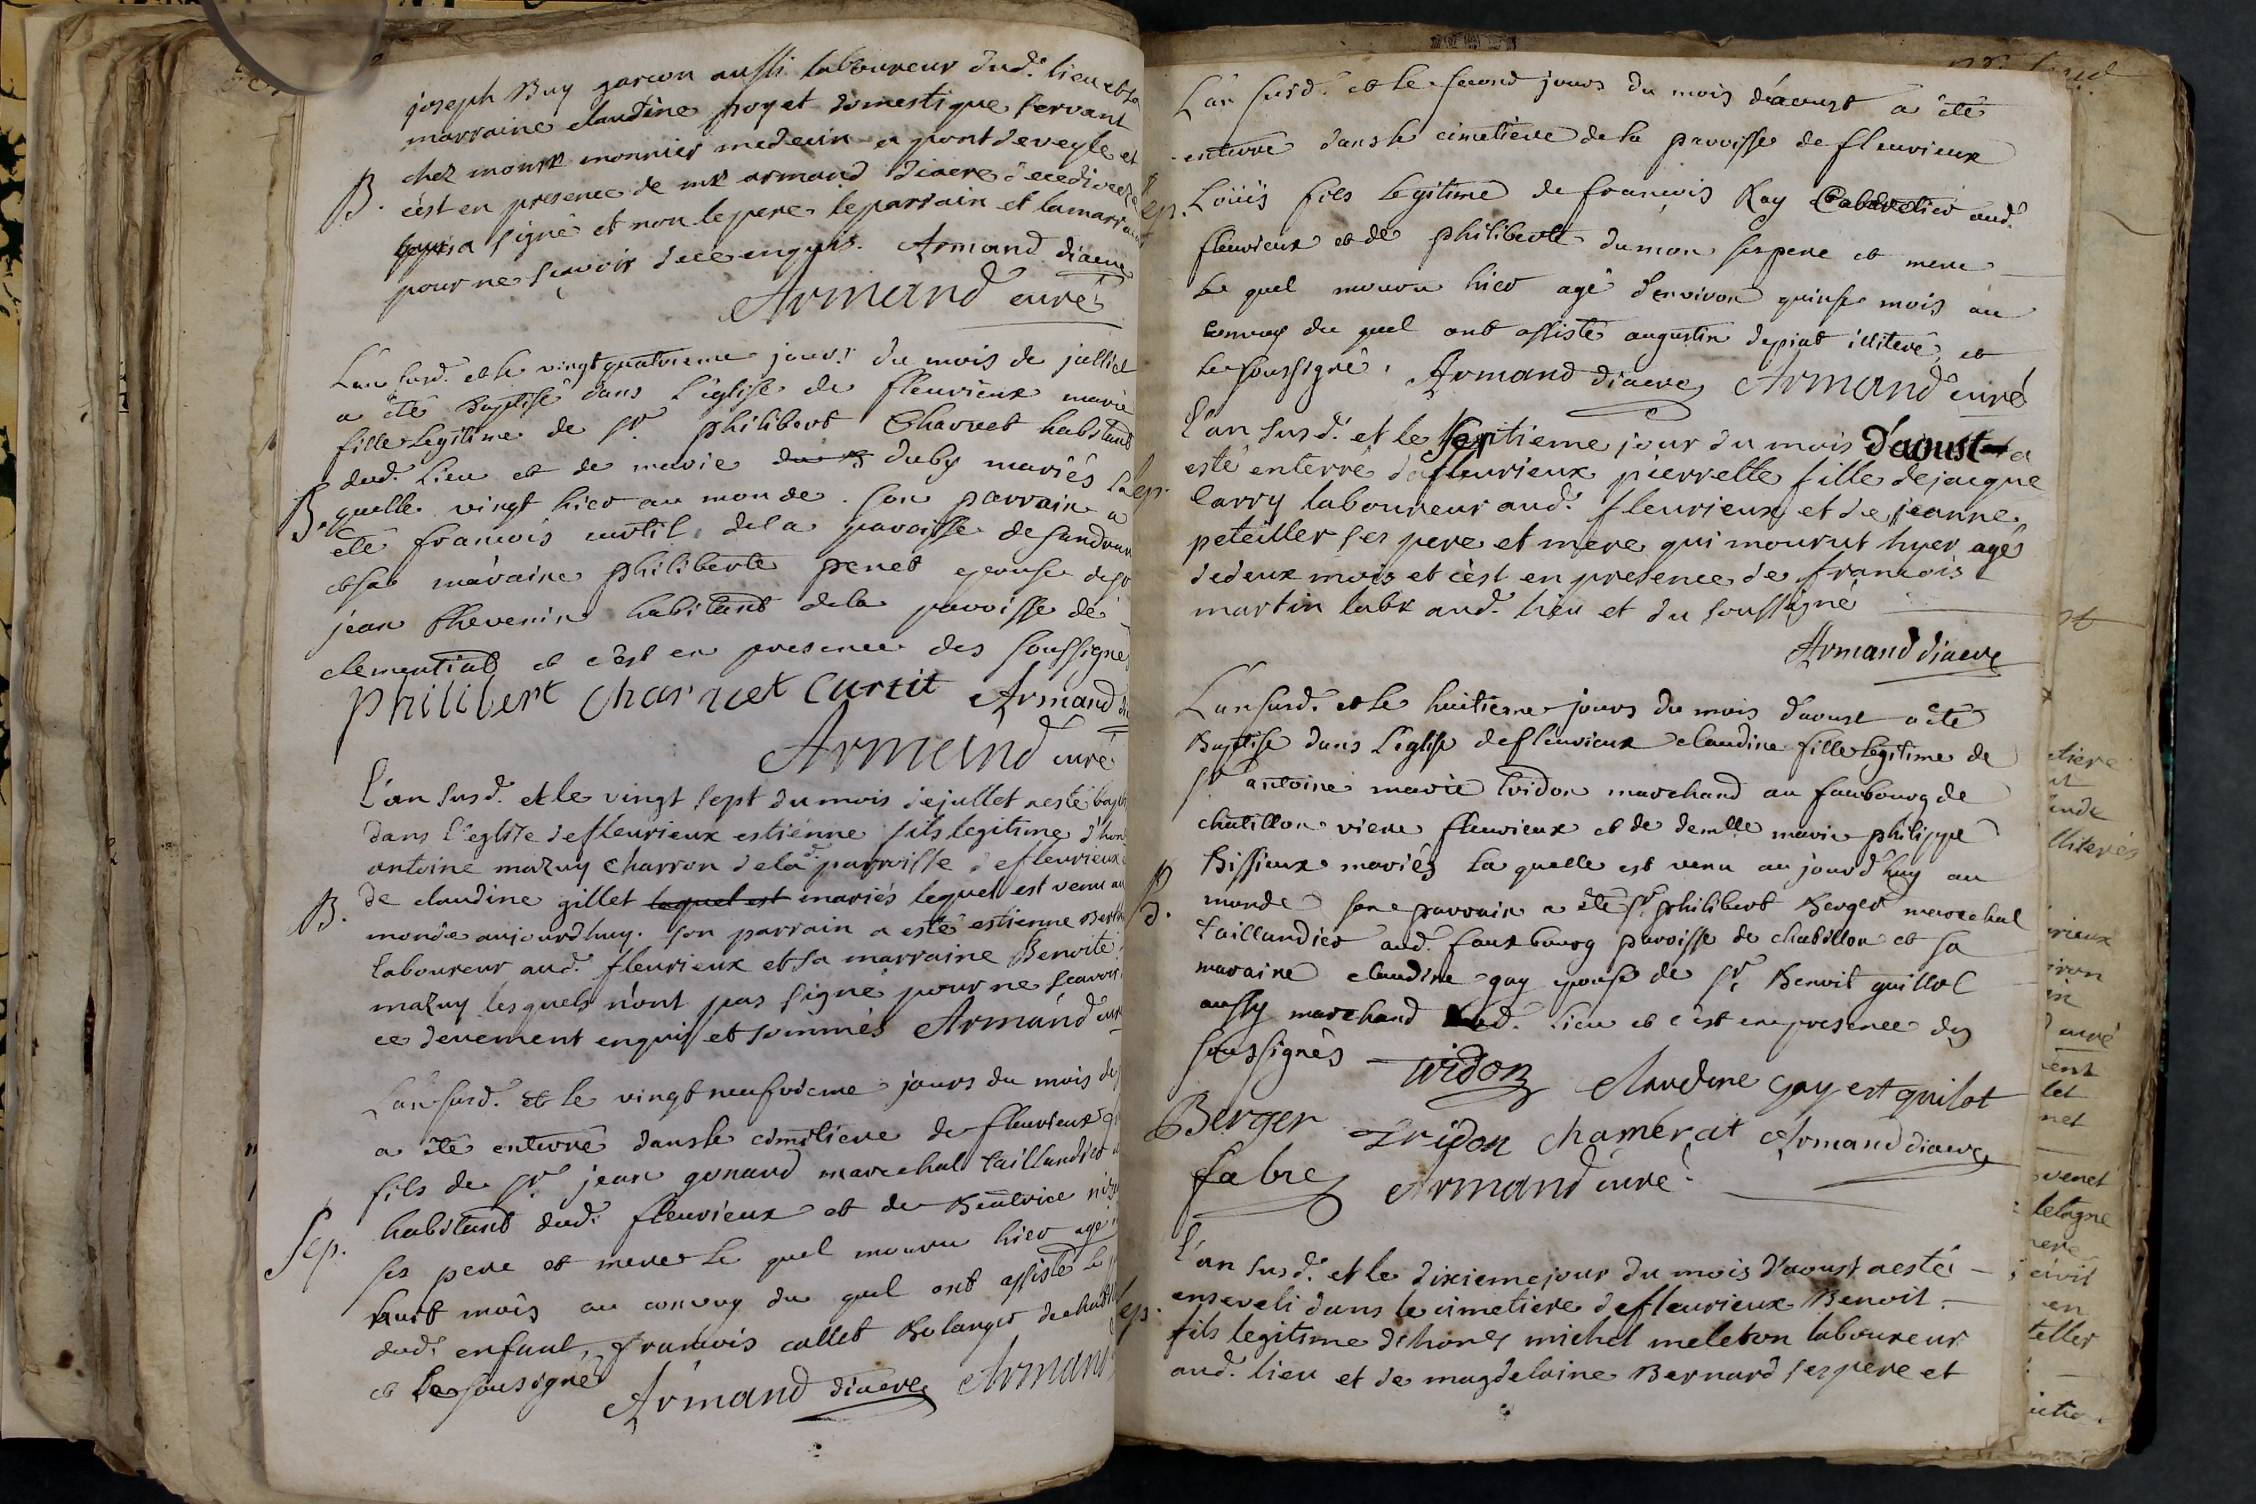 joseph Buy garcon aussi laboureur dud. lieu et sa
marraine claudine poyet domestique servant
chez monsr monnier medecin a pont de veyle et
B. c'est en presence de mr armand diacre de ce diocese
qui a signé et non le pere le parrain et la marraine
pour ne sçavoir de ce enquis. Armand diacre
Armand curé
L'an susd. et le vingt quatrieme jours du mois de juilliet
a été baptisé dans l'église de fleurieux marie
fille legitime de sr philibert Charvet habitant
dud. lieu et de marie duby mariés la
B. quelle vingt hier au monde. son parrain a
été francois curtil de la paroisse de sandran
et sa maraine philiberte penet epouse de sr
jean thevenin habitant de la paroisse de
clementiat et c'est en presence des soussignes
philibert charvet curtit Armand
Armand curé
L'an susd. et le vingt sept du mois de jullet a esté bapt
dans l'eglise de fleurieux estiénne fils legitime d'hon
antoine mazuy charron de lad. parroisse de fleurieux
B. de claudine gillet lequel est mariés lequel est venu au
monde aujourdhuy. son parrain a esté estienne
laboureur aud. fleurieux et sa marraine Benoite
mazuy lesquels n'ont pas signé pour ne scavoir
ce deuement enquis et sommés Armand curé
L'an susd. et le vingt neufvieme jours du mois de
a été enterré dans le cimetiere de fleurieux
fils de sr jean gonand marechal taillandier
habitant dud. fleurieux et de Beatrice
Sep. ses pere et mere le quel mouru hier agé
huit mois au convoy du quel ont assisté le
dud. enfant, francois collet Bolanger de
et le sousigné Armand diacre Armand
L'an susd. et le second jours du mois d'aoust a été
enterré dans le cimetiere de la paroisse de fleurieux
ep. Loüis fils legitime de francois Ray Cabaretier aud.
fleurieux et de philiberte dumon ses pere et mere
le quel mouru hier agé d'environ quinse mois au
convoy du quel ont assisté augustin depiat illiteré et
le soussigné. Armand diacre Armand curé
L'an susd. et le septieme jour du mois d'aoust a
ep. esté enterré a fleurieux pierrette fille de jacque
carry laboureur aud. fleurieux et de jeanne
peteiller ses pere et mere qui mourut hyer agé
de deux mois et c'est en presence de francois
martin labr aud. lieu et du soussigné
Armand diacre
L'an susd. et le huitieme jours du mois d'aoust a été
Baptisé dans l'eglise de fleurieux claudine fille legitime de
sr antoine marie tridon marchand au faubourg de
chatillon viere fleurieux et de demlle marie philippe
Bissieux mariés la quelle est venu au jourd'huy au
B. monde son parrain a été sr philibert Berger marechal
taillandier aud. fauxbourg paroisse de chatillon et sa
maraine claudine gay epouse de sr Benoit guillot
aussy marchand aud. lieu et c'est en presence des
soussignés tridon claudine gay est guilot
Berger tridon chamérat Armand diacre
fabre Armand curé
L'an susd. et le dixieme jour du mois d'aoust a esté
enseveli dans le cimetiere de fleurieux Benoit
ep. fils legitime d'hon michel meleton laboureur
aud. lieu et de magdelaine Bernard ses pere et